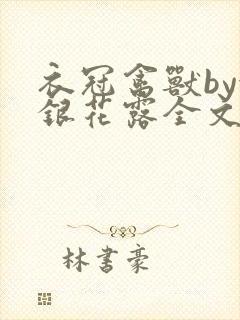 衣冠禽獸by
銀花露全文
林書豪